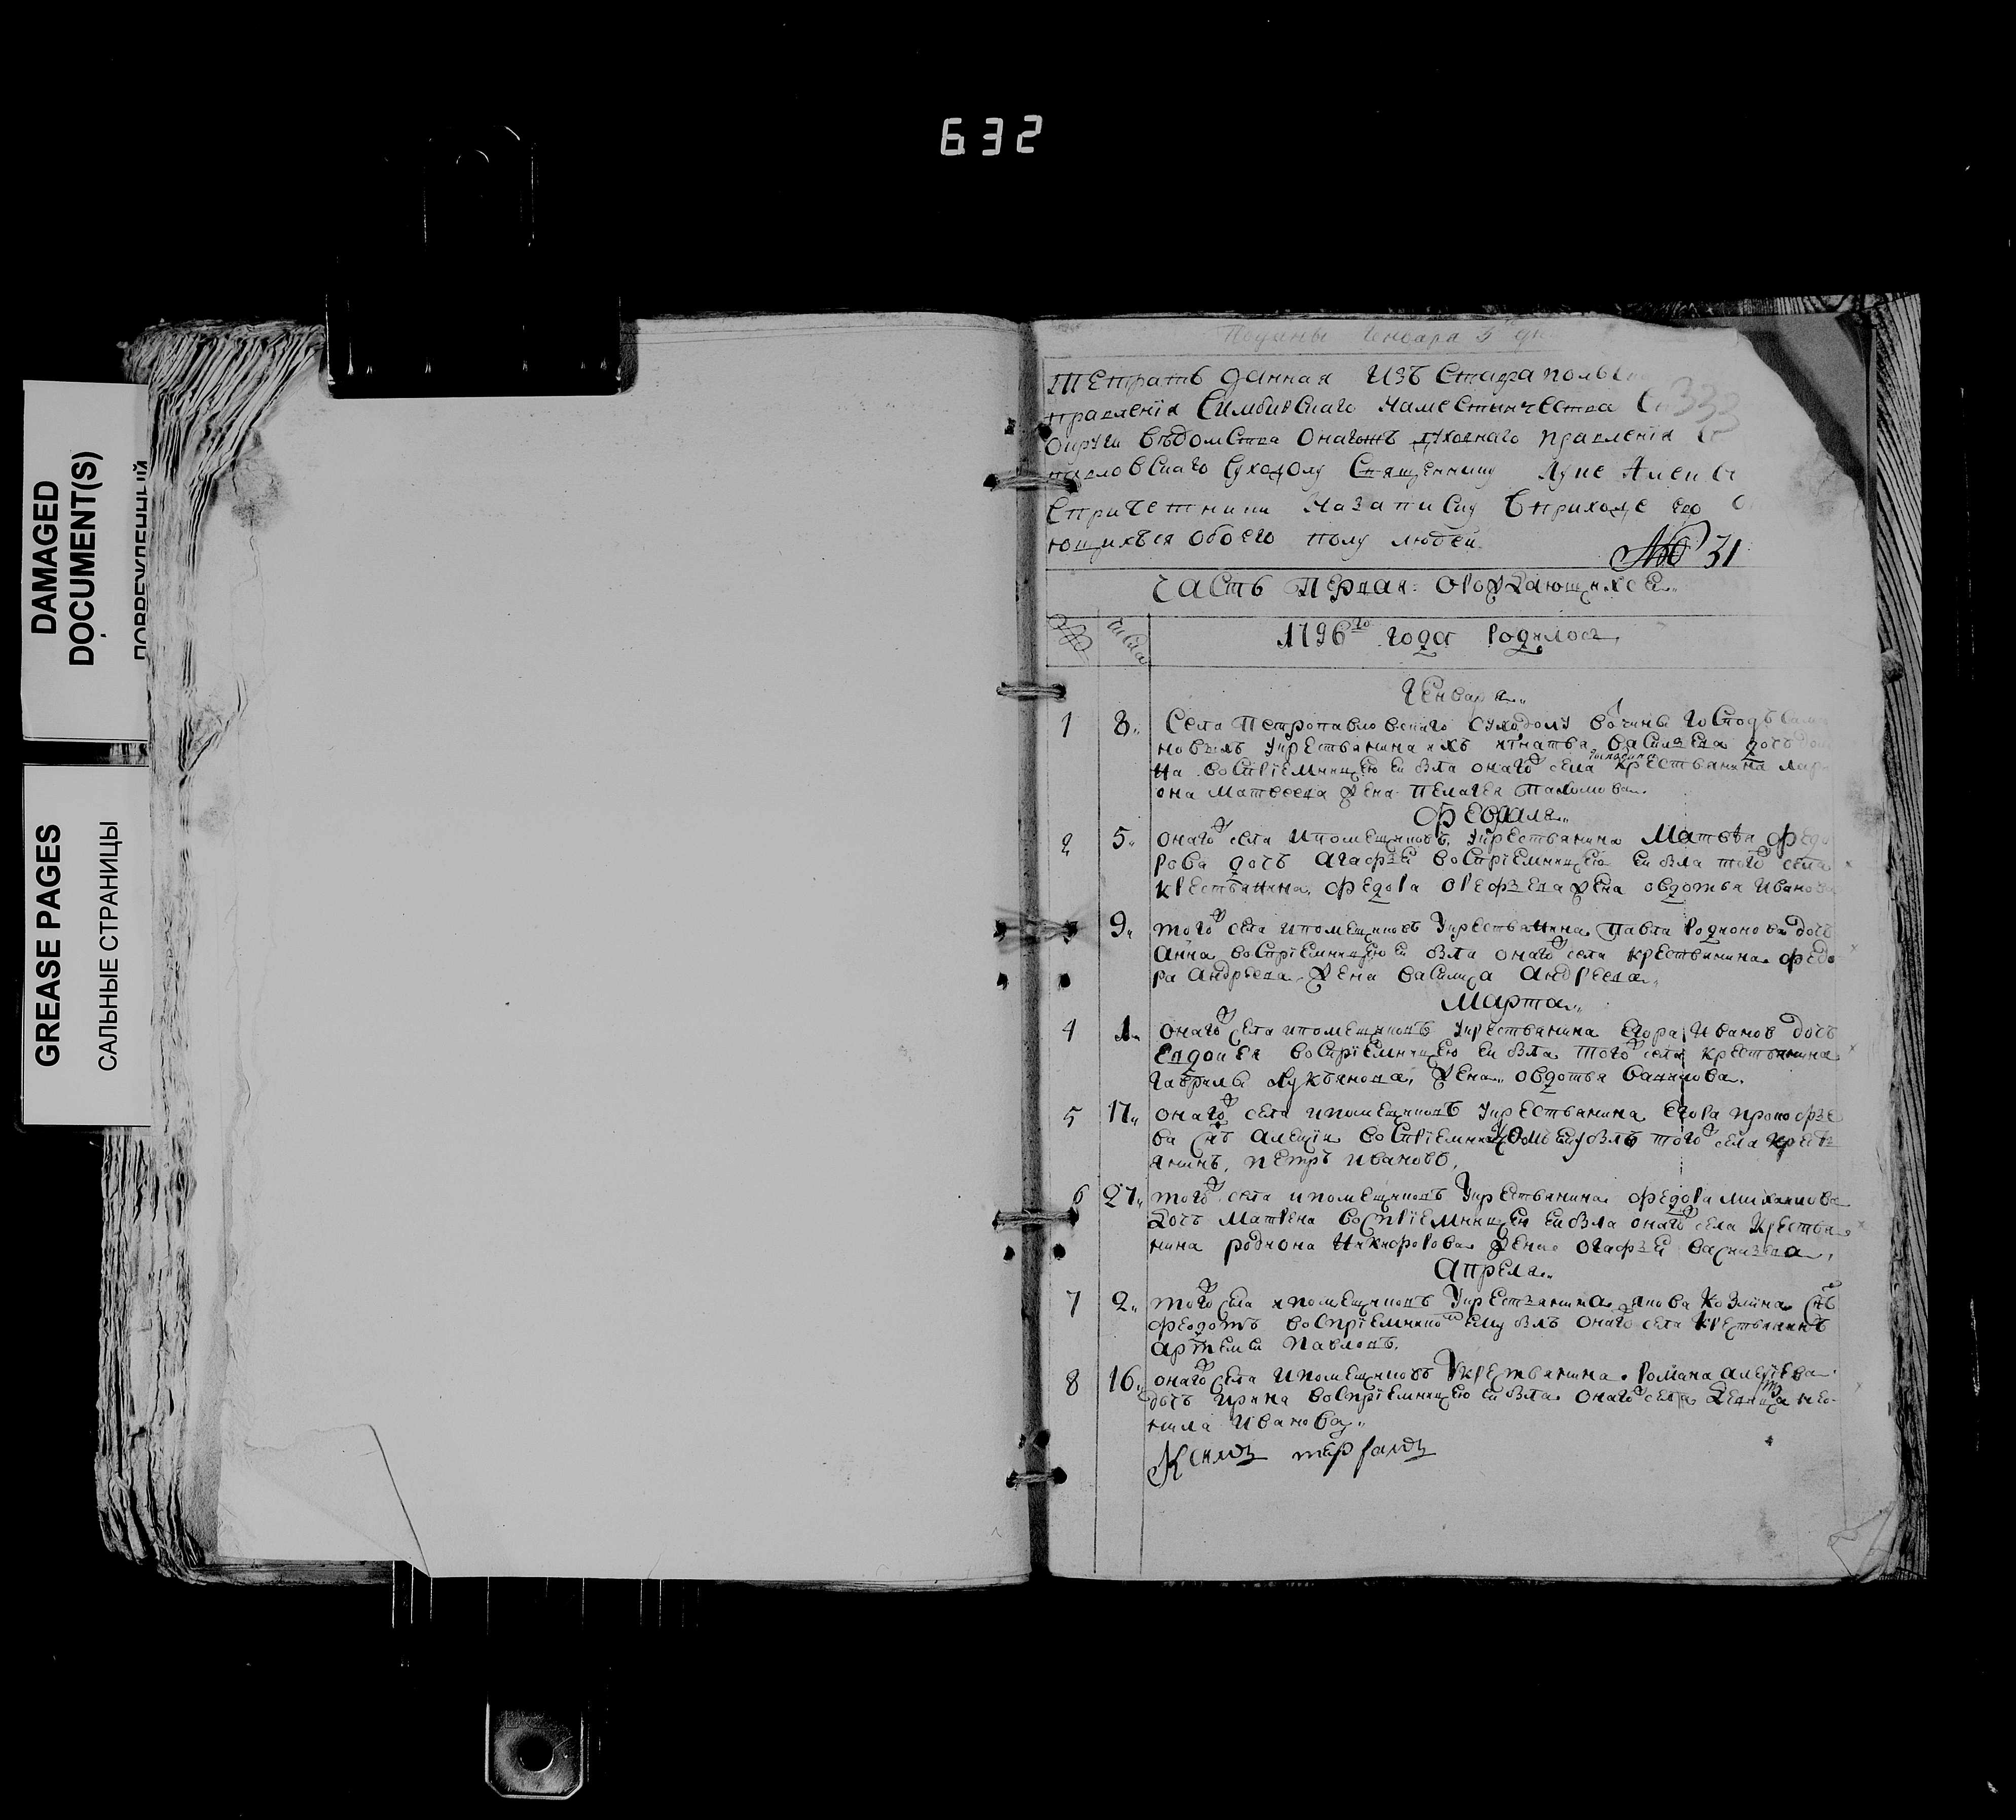 632
DAMAGED
DOCUMENT(S)
GREASE PAGES
САЛЬНЫЕ СТРАНИЦЫ
Поданы Генваря 3 дн
Тетрать данная изъ Ставраполь
правления Симбирскаго наместничества
округи ведомства онагожъ духовнаго правления
павловскаго Суходолу Священнику Луке Алек
Спричетники Назаписку Вприходе его
ющихъся обоего полу людей
333
№ 31
Часть первая орождающихся
№ числа 1796го года родилось
Генваря
1 8 Села Петропавловскаго Суходолу вочины господъ
новыхъ укрестьянина ихъ игнатья васильева дочь
на восприемницею ей была онаго села крестьянина лари
она матвеева жена пелагея
Февраля
2 5 онагож села ипомещиковъ укрестьянина Матвея федо
рова дочь агафья восприемницею ей была тогож села
крестьянина федора орефьева жена овдотья Иванова
9 тогож села ипомещиковъ укрестьянина павла родионова дочь
Анна восприемницею ей была онагож села крестьянина федо
ра андреева жена василиса андреева
Марта
4 1 онагож села ипомещиковъ укрестьянина Егора Иванов дочь
Евдокея восприемницею ей была тогож села крестьянина
гаврилы лукьянова жена овдотья данилова
5 17 онагож села ипомещиковъ укрестьянина Егора прокофье
ва снъ алексей восприемникомъ ему былъ тогож села крестъ
янинъ петръ ивановъ
6 27 тогож села ипомещиковъ укрестьянина федора михаилова
дочь матрена восприемницей ей была онагож села крестья
нина родиона Никифорова жена огафья васильева
Апреля
7 2 тогож села ипомещиковъ укрестьянина якова козмина снъ
феодотъ восприемником ему былъ онагож села крестьянинъ
артемей павловъ
8 16 онагож села ипомещиковъ укрестьянина романа алексеева
дочь ирина восприемницею ей была онагож села девица нео
нила Иванова